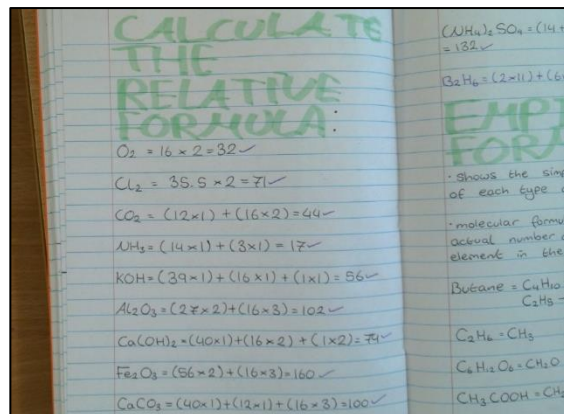 CALCULATE
THE
RELATIVE
FORMULA:
O₂ = 16 × 2 = 32 ✓
Cl₂ = 35.5 × 2 = 71 ✓
CO₂ = (12×1) + (16×2) = 44 ✓
NH₃ = (14×1) + (3×1) = 17 ✓
KOH = (39×1) + (16×1) + (1×1) = 56 ✓
Al₂O₃ = (27×2) + (16×3) = 102 ✓
Ca(OH)₂ = (40×1) + (16×2) + (1×2) = 74 ✓
Fe₂O₃ = (56×2) + (16×3) = 160 ✓
CaCO₃ = (40×1) + (12×1) + (16×3) = 100 ✓
(NH₄)₂SO₄ = (14
= 132 ✓
B₂H₆ = (2×11) + (6
EMP
FORM
• Shows the sim
of each type
• molecular formu
actual number
element in the
Butane = C₄H₁₀
C₂H₅
C₂H₆ = CH₃
C₆H₁₂O₆ = CH₂O
CH₃COOH = CH₂